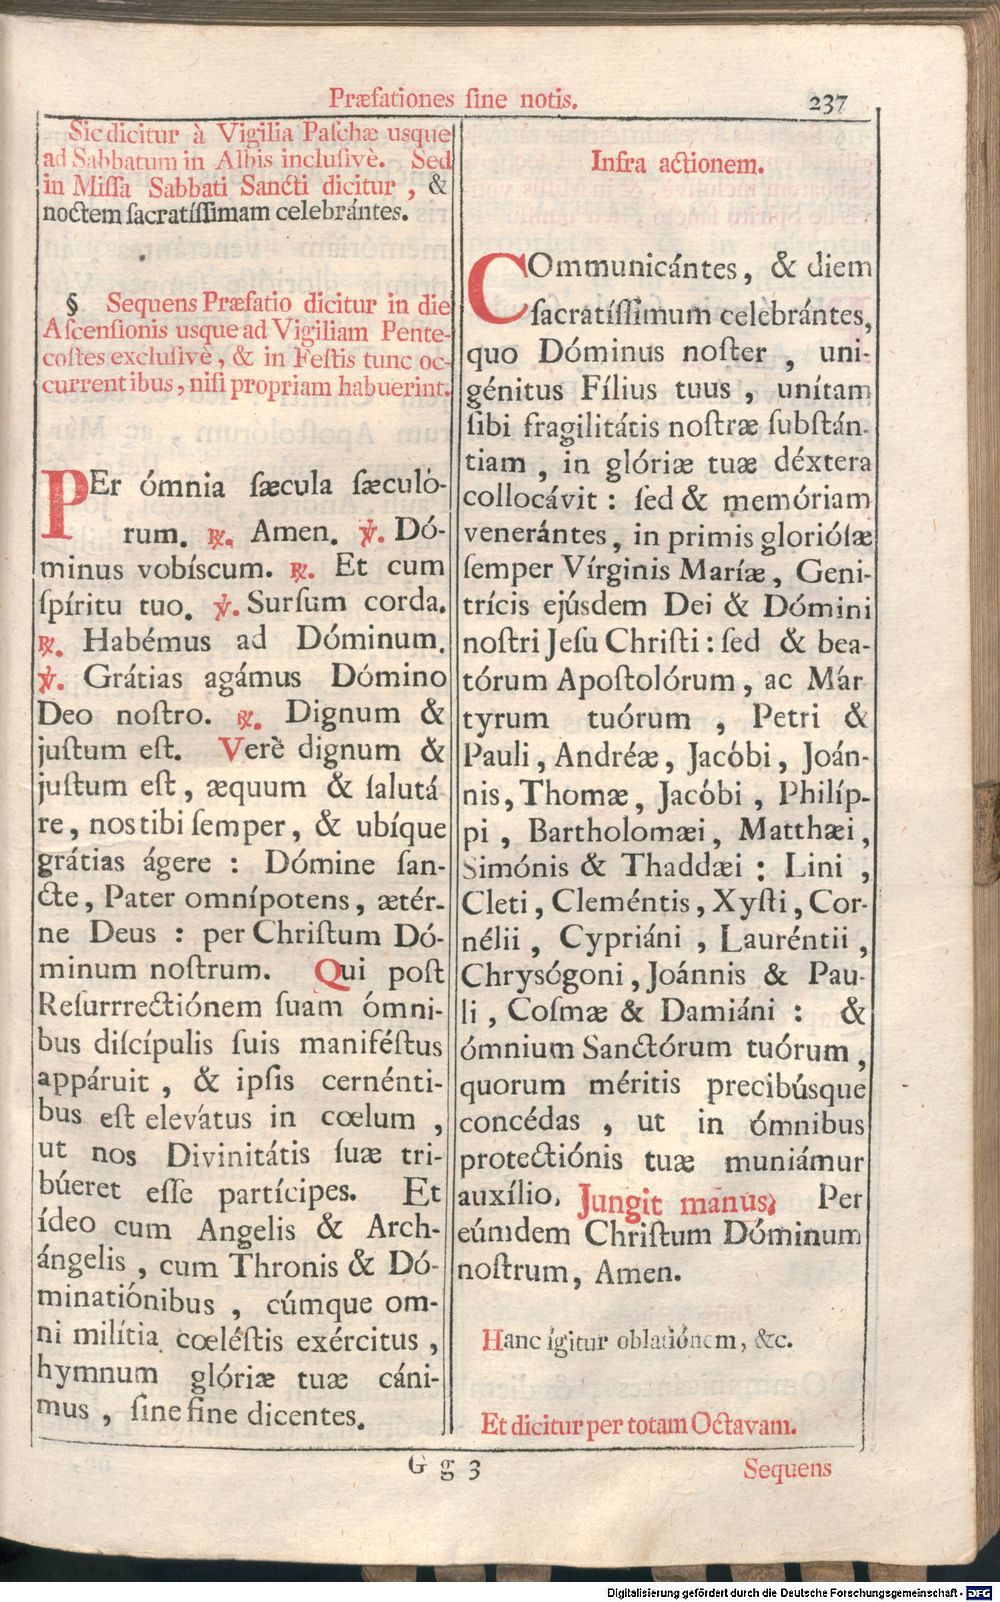 Præfationes ſine notis. 237
Sic dicitur à Vigilia Paſchæ usque
ad Sabbatum in Albis incluſivè. Sed
in Miſſa Sabbati Sancti dicitur, &
noctem ſacratíſſimam celebrántes.
§ Sequens Præfatio dicitur in die
Aſcenſionis usque ad Vigiliam Pente-
coſtes excluſivè, & in Feſtis tunc oc-
currentibus, niſi propriam habuerint.
PEr ómnia ſæcula ſæculó-
rum. ℟. Amen. ℣. Dó-
minus vobíscum. ℟. Et cum
ſpíritu tuo. ℣. Surſum corda.
℟. Habémus ad Dóminum.
℣. Grátias agámus Dómino
Deo noſtro. ℟. Dignum &
juſtum eſt. Verè dignum &
juſtum eſt, æquum & ſalutá
re, nos tibi ſemper, & ubíque
grátias ágere : Dómine ſan-
cte, Pater omnípotens, ætér-
ne Deus : per Chriſtum Dó-
minum noſtrum. Qui poſt
Reſurrrectiónem ſuam ómni-
bus diſcípulis ſuis maniféſtus
appáruit, & ipſis cernénti-
bus eſt elevátus in cœlum,
ut nos Divinitátis ſuæ tri-
búeret eſſe partícipes. Et
ídeo cum Angelis & Arch-
ángelis, cum Thronis & Dó-
minatiónibus, cúmque om-
ni milítia cœléſtis exércitus,
hymnum glóriæ tuæ cáni-
mus, ſine fine dicentes.
Infra actionem.
COmmunicántes, & diem
ſacratíſſimum celebrántes,
quo Dóminus noſter, uni-
génitus Fílius tuus, unítam
ſibi fragilitátis noſtræ ſubſtán-
tiam, in glóriæ tuæ déxtera
collocávit : ſed & memóriam
venerántes, in primis glorióſæ
ſemper Vírginis Maríæ, Geni-
trícis ejúsdem Dei & Dómini
noſtri Jeſu Chriſti : ſed & bea-
tórum Apoſtolórum, ac Már
tyrum tuórum, Petri &
Pauli, Andréæ, Jacóbi, Joán-
nis, Thomæ, Jacóbi, Philíp-
pi, Bartholomæi, Matthæi,
Simónis & Thaddæi : Lini,
Cleti, Cleméntis, Xyſti, Cor-
nélii, Cypriáni, Lauréntii,
Chrysógoni, Joánnis & Pau-
li, Coſmæ & Damiáni : &
ómnium Sanctórum tuórum,
quorum méritis precibúsque
concédas, ut in ómnibus
protectiónis tuæ muniámur
auxílio, Jungit manus, Per
eúmdem Chriſtum Dóminum
noſtrum, Amen.
Hanc ígitur oblatiónem, &c.
Et dicitur per totam Octavam.
G g 3 Sequens
Digitalisierung gefördert durch die Deutsche Forschungsgemeinschaft - DFG